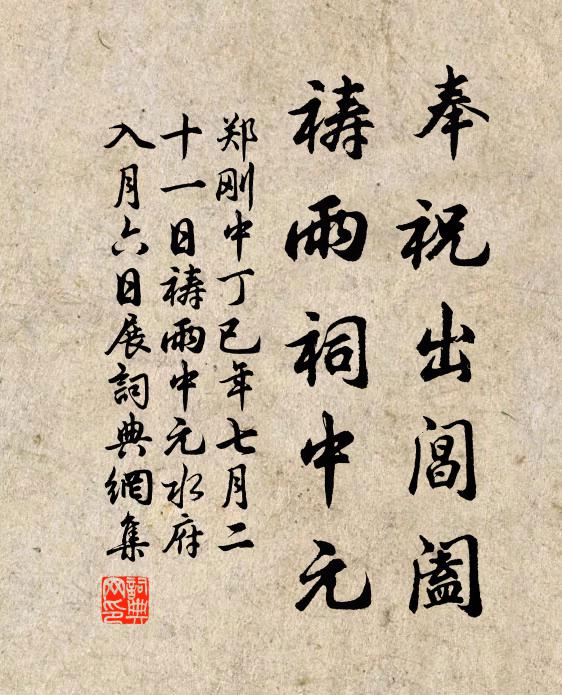 奉祝出閶阖
祷雨祠中元
郑刚中丁巳年七月二
十一日祷雨中元水府
入月六日展詞典網集
詞典网印